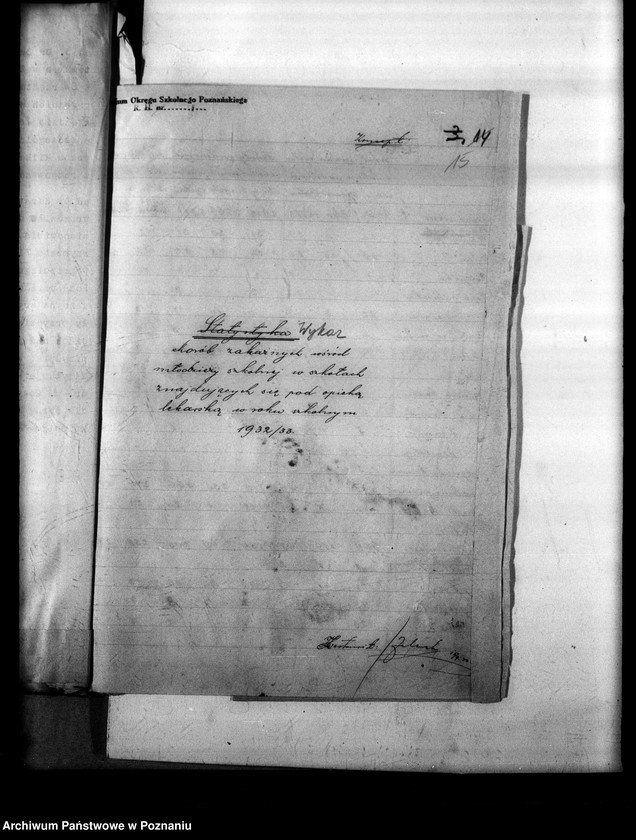 um Okręgu Szkolnego Poznańskiego
14
15
Statystyka Wykaz
chorób zakaźnych wśród
młodzieży szkolnej w szkołach
znajdujących się pod opieką
lekarską w roku szkolnym
1932/33.
Archiwum Państwowe w Poznaniu